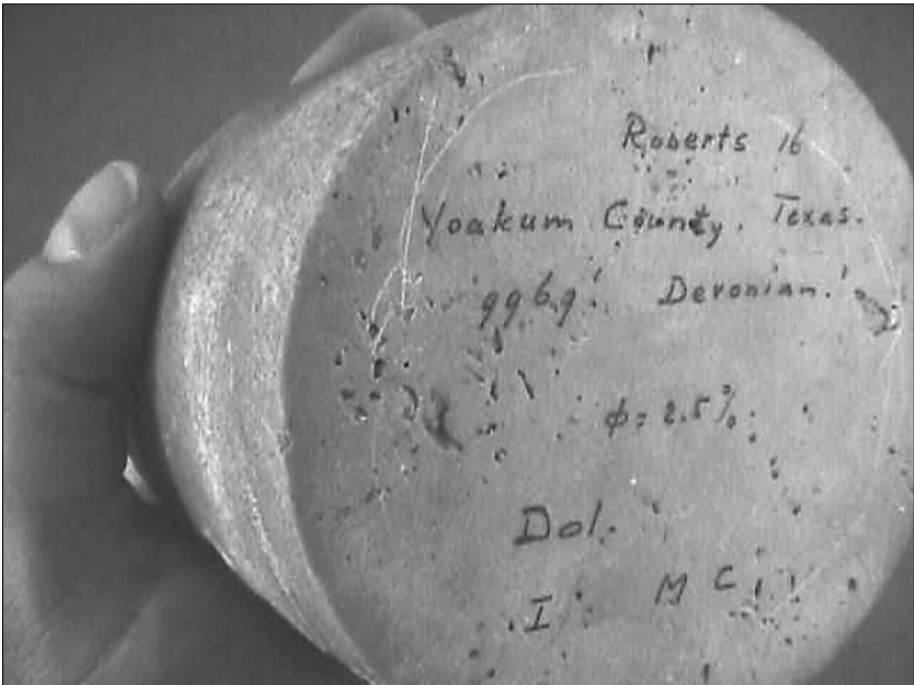 Roberts 16
Yoakum County, Texas.
9969' Devonian.
ϕ = 2.5%
Dol.
I M C